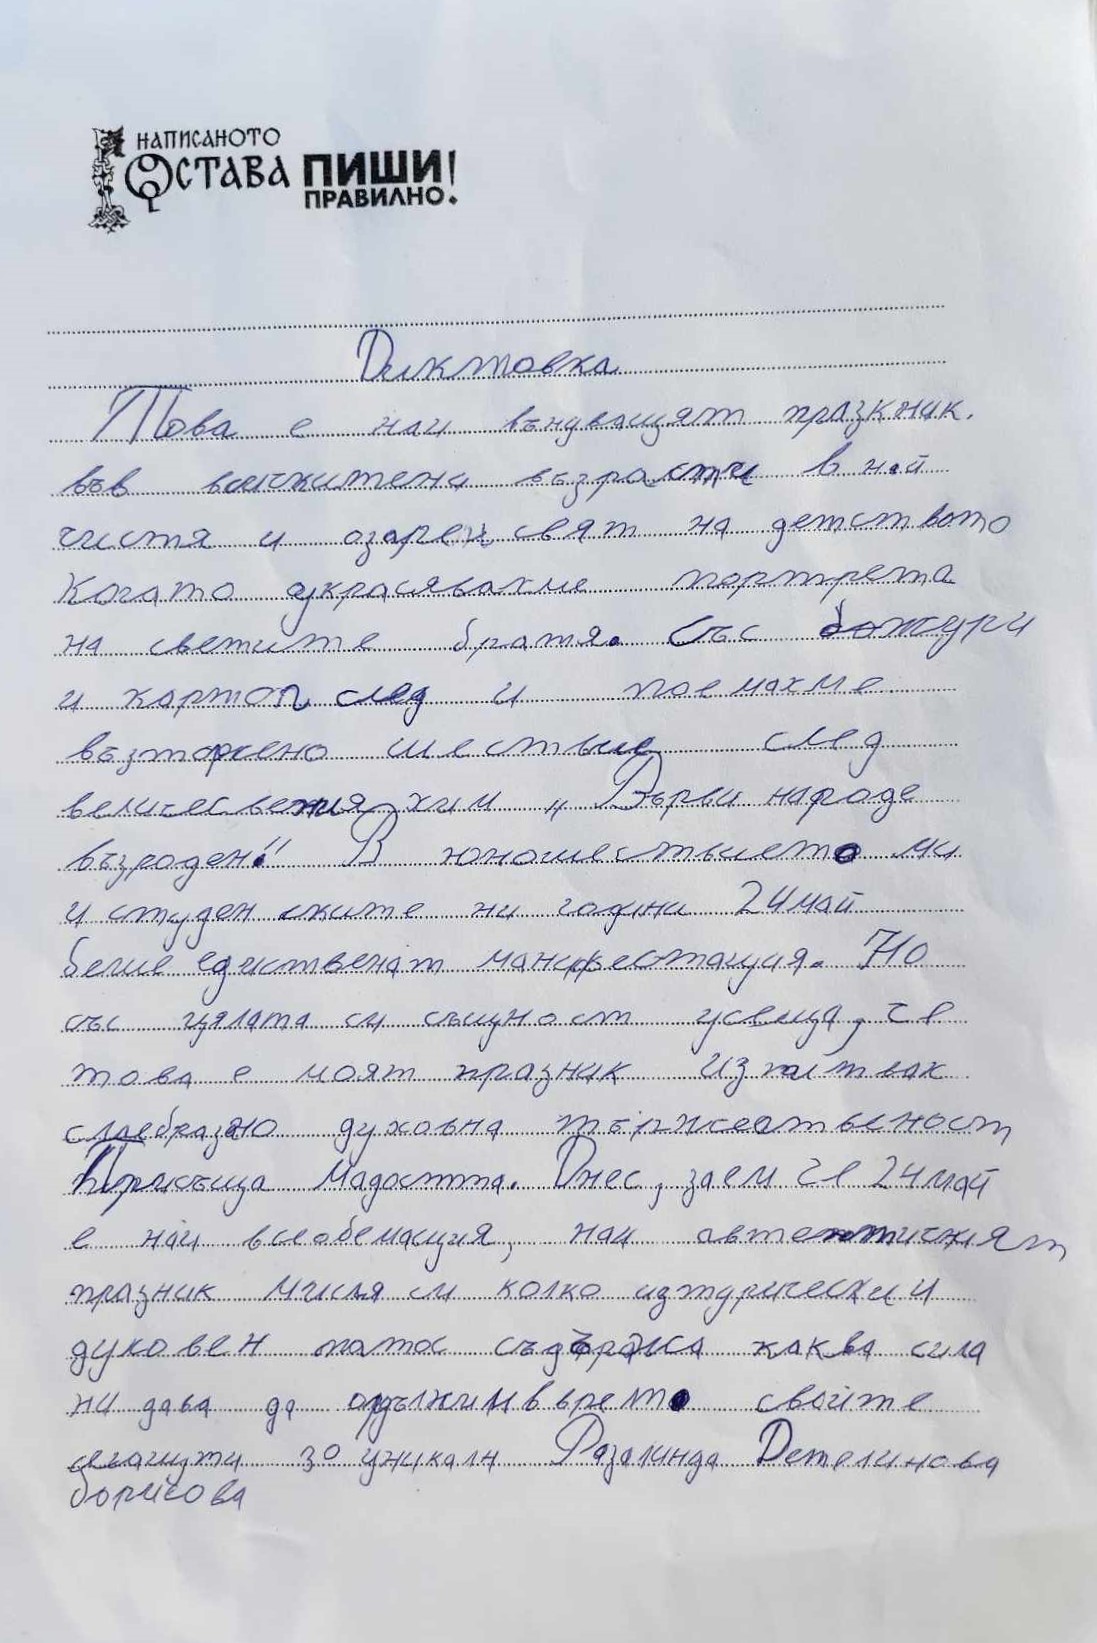 НАПИСАНОТО
ОСТАВА ПИШИ!
ПРАВИЛНО.
Диктовка
Това е наи вънуващят празкник.
във възрасти в най
чистя и озарен свят на детството
Когато украсявахме портрета
на светите братя. Със божури
и картоп след и поемахме
възторжено шествие след
величествения хим „Върви народе
възроден!“ В юношествието ми
и студен ските ни години 24 май
беше единственат манифестация. Но
със цялата си същност усеща, че
това е моят празник
духовна
Мадостта. Днес, заем че 24 май
е най всеобемащия, наи автентичният
празник мисля си колко изтурически и
духовен патос съдържа каква сила
ни дава да одължим в време свойте
за уникалн Разалинда Детелинова
борисова